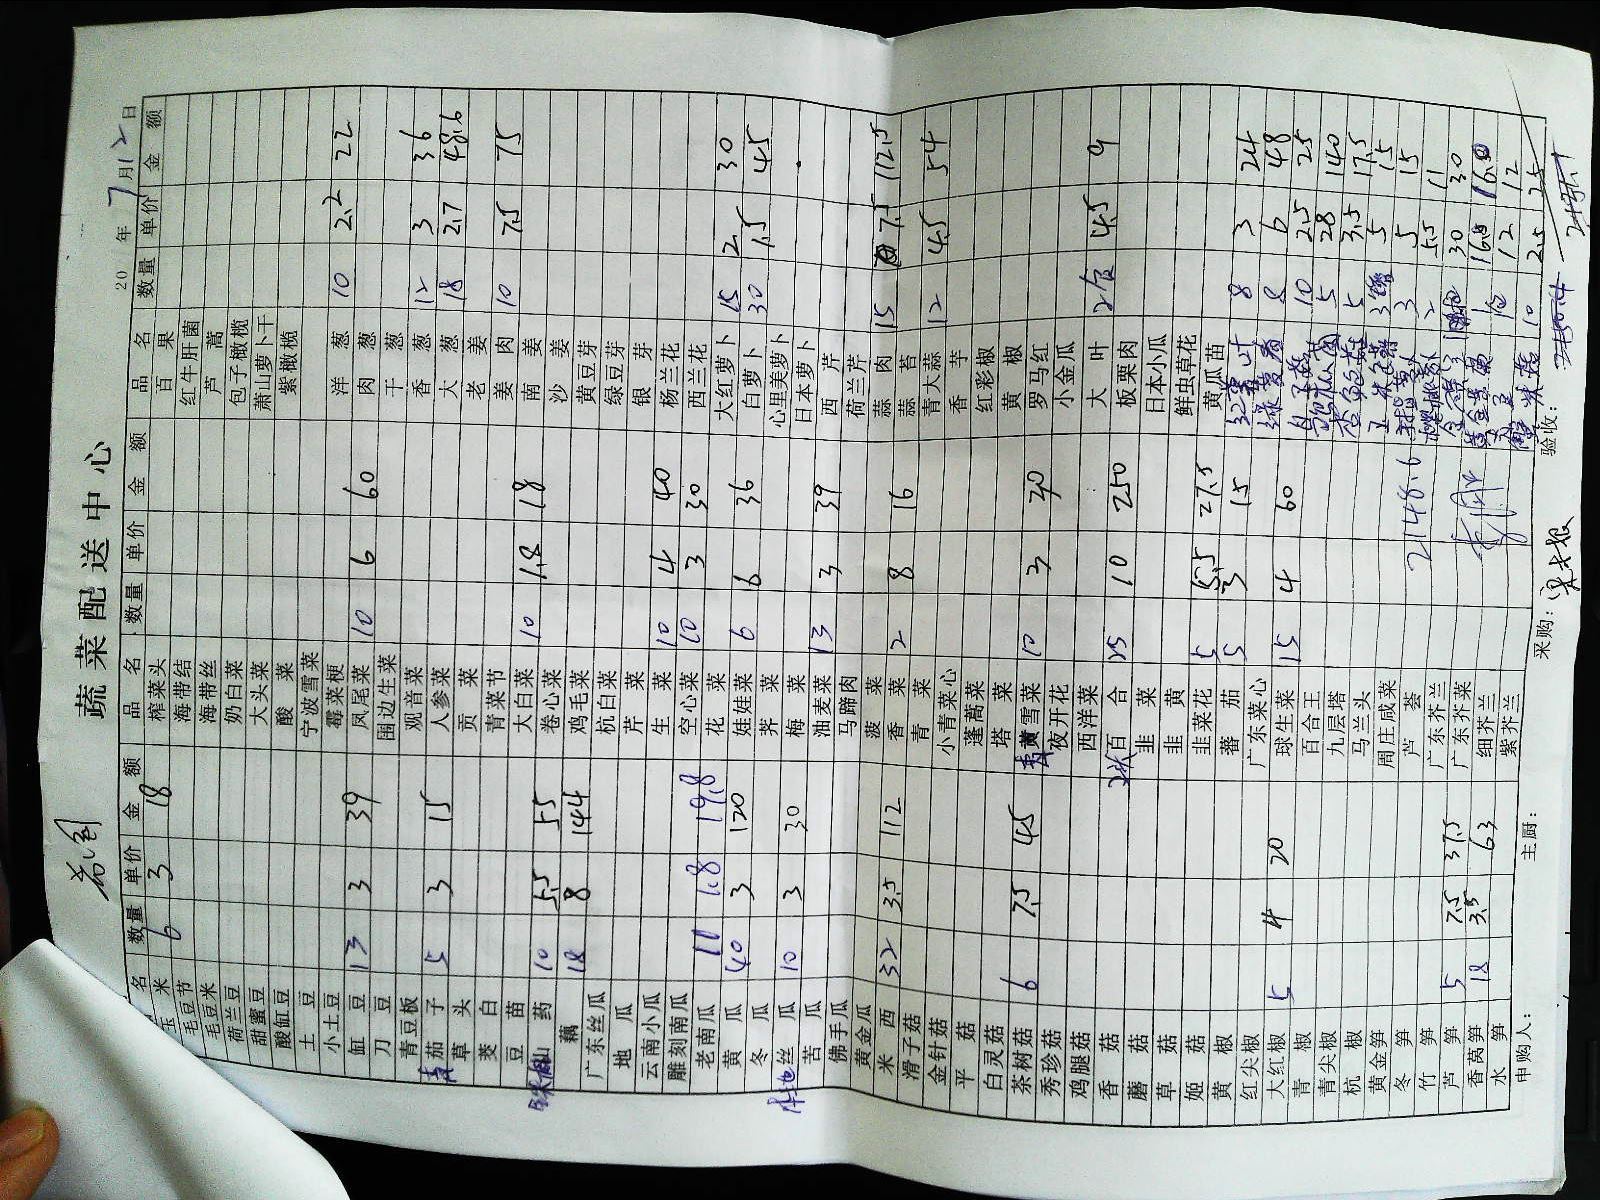 蔬菜配送中心
20 年 7月12日
名 数量 单价 金额 品名 数量 单价 金额 品名 数量 单价 金额
玉米 6 3 18 榨菜头 百果
毛豆节 海带结 红牛肝菌
毛豆米 海带丝 芦蒿
荷兰豆 奶白菜 包子橄榄
甜蜜豆 大头菜 萧山萝卜干
酸缸豆 酸菜 紫橄榄
土豆 宁波雪菜
小土豆 霉菜梗 洋葱 10 2.2 22
缸豆 13 3 39 凤尾菜 10 6 60 肉葱
刀豆 围边生菜 干葱
青豆板 观音菜 香葱 12 3 36
茄子 5 3 15 人参菜 大葱 18 2.7 48.6
草头 贡菜 老姜
茭白 青菜节 姜肉 10 7.5 75
豆苗 大白菜 10 1.8 18 南姜
山药 10 5.5 55 卷心菜 沙姜
藕 18 8 144 鸡毛菜 黄豆芽
广东丝瓜 杭白菜 绿豆芽
地瓜 芹菜 银芽
云南小瓜 生菜 10 4 40 杨兰花
雕刻南瓜 空心菜 10 3 30 西兰花
老南瓜 11 1.8 19.8 花菜 大红萝卜 15 2 30
黄瓜 40 3 120 娃娃菜 6 6 36 白萝卜 30 1.5 45
冬瓜 荠菜 心里美萝卜
丝瓜 10 3 30 梅菜 日本萝卜
苦瓜 油麦菜 13 3 39 西芹
佛手瓜 马蹄肉 荷兰芹
黄金瓜 菠菜 蒜肉 15 7.5 112.5
米西 32 3.5 112 香菜 2 8 16 蒜苔
滑子菇 青菜 青大蒜 12 4.5 54
金针菇 小青菜心 香芋
平菇 蓬蒿菜 红彩椒
白灵菇 塔菜 黄椒
茶树菇 6 7.5 45 黄雪菜 10 3 30 罗马红
秀珍菇 夜开花 小金瓜
鸡腿菇 西洋菜 大叶 2包 4.5 9
香菇 百合 25 10 250 板栗肉
蘑菇 韭菜 日本小瓜
草菇 韭黄 鲜虫草花
姬菇 韭菜花 5 5.5 27.5 黄瓜苗
黄椒 番茄 5 3 15 8 3 24
红尖椒 广东菜心 8 6 48
大红椒 5 4 20 球生菜 15 4 60 10 2.5 25
青椒 百合王 5 28 140
青尖椒 九层塔 5 3.5 17.5
杭椒 马兰头 5 15
黄金笋 周庄咸菜 3 5 15
冬笋 芦荟 2 5.5 11
竹笋 广东芥兰 30 30
芦笋 5 7.5 37.5 广东芥菜 16.8
香莴笋 18 3.5 63 细芥兰 12 12
水笋 紫芥兰 10 2.5 25
2148.6
申购人: 主厨: 采购: 验收: